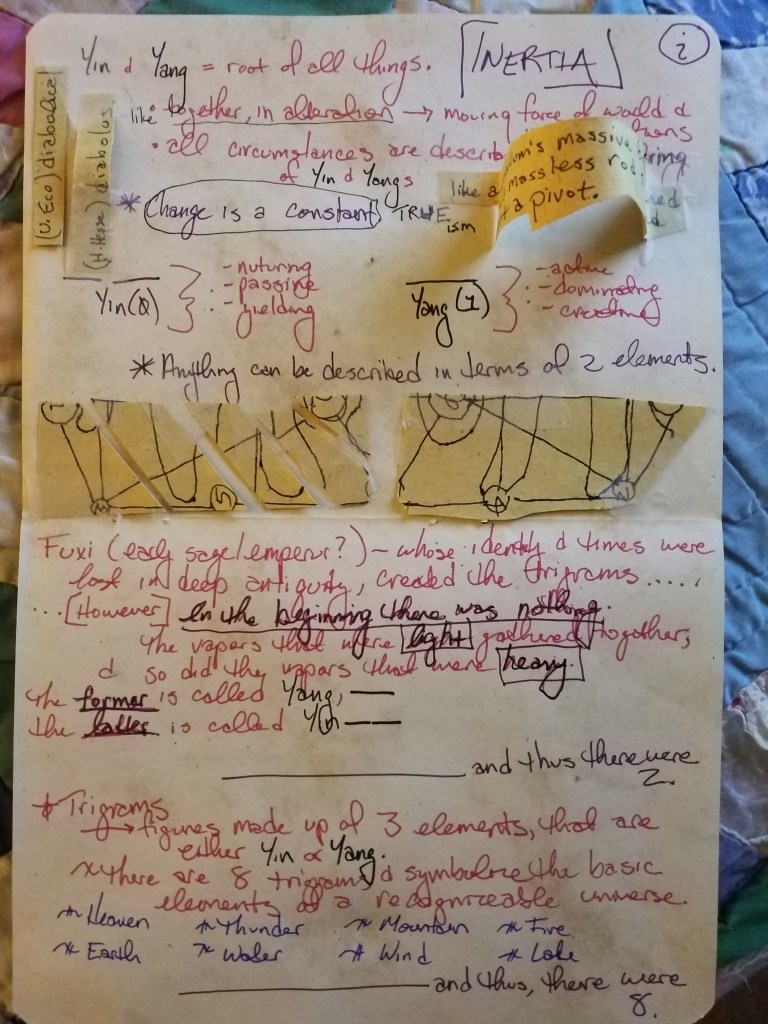 Yin & Yang = root of all things.
INERTIA
i
(U. Eco) diabolical
(H. Hesse) diabolus
like together, in alteration → moving force of world &
• all circumstances are describ
of Yin & Yangs
um's massive
string
like a massless rod
a pivot.
* Change is a constant TRUEism
Yin(0) } : - nuturing
- passive
- yielding
Yang(1) } : - active
- dominating
- creating
* Anything can be described in terms of 2 elements.
Fuxi (early sage/emperor?) - whose identity & times were
lost in deep antiquity, created the trigrams.....
... [However] In the beginning there was nothing.
The vapors that were light gathered together,
& so did the vapors that were heavy.
The former is called Yang, —
The latter is called Yin — —
and thus there were
2.
* Trigrams
→ figures made up of 3 elements, that are
either Yin or Yang.
* there are 8 trigrams & symbolize the basic
elements of a recognizeable universe.
* Heaven * Thunder * Mountain * Fire
* Earth * Water * Wind * Lake
and thus, there were
8.